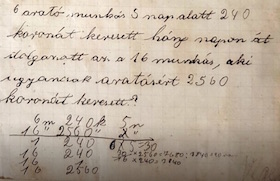 6 arató munkás 5 nap alatt 240
koronát keresett hány napon át
dolgozott az a 16 munkás, aki
ugyancsak aratásért 2560
koronát keresett?
6 m 240 k 5 n
16 " 2560 "
1 240 6 x 5 = 30
16 240
1 240
16 2560